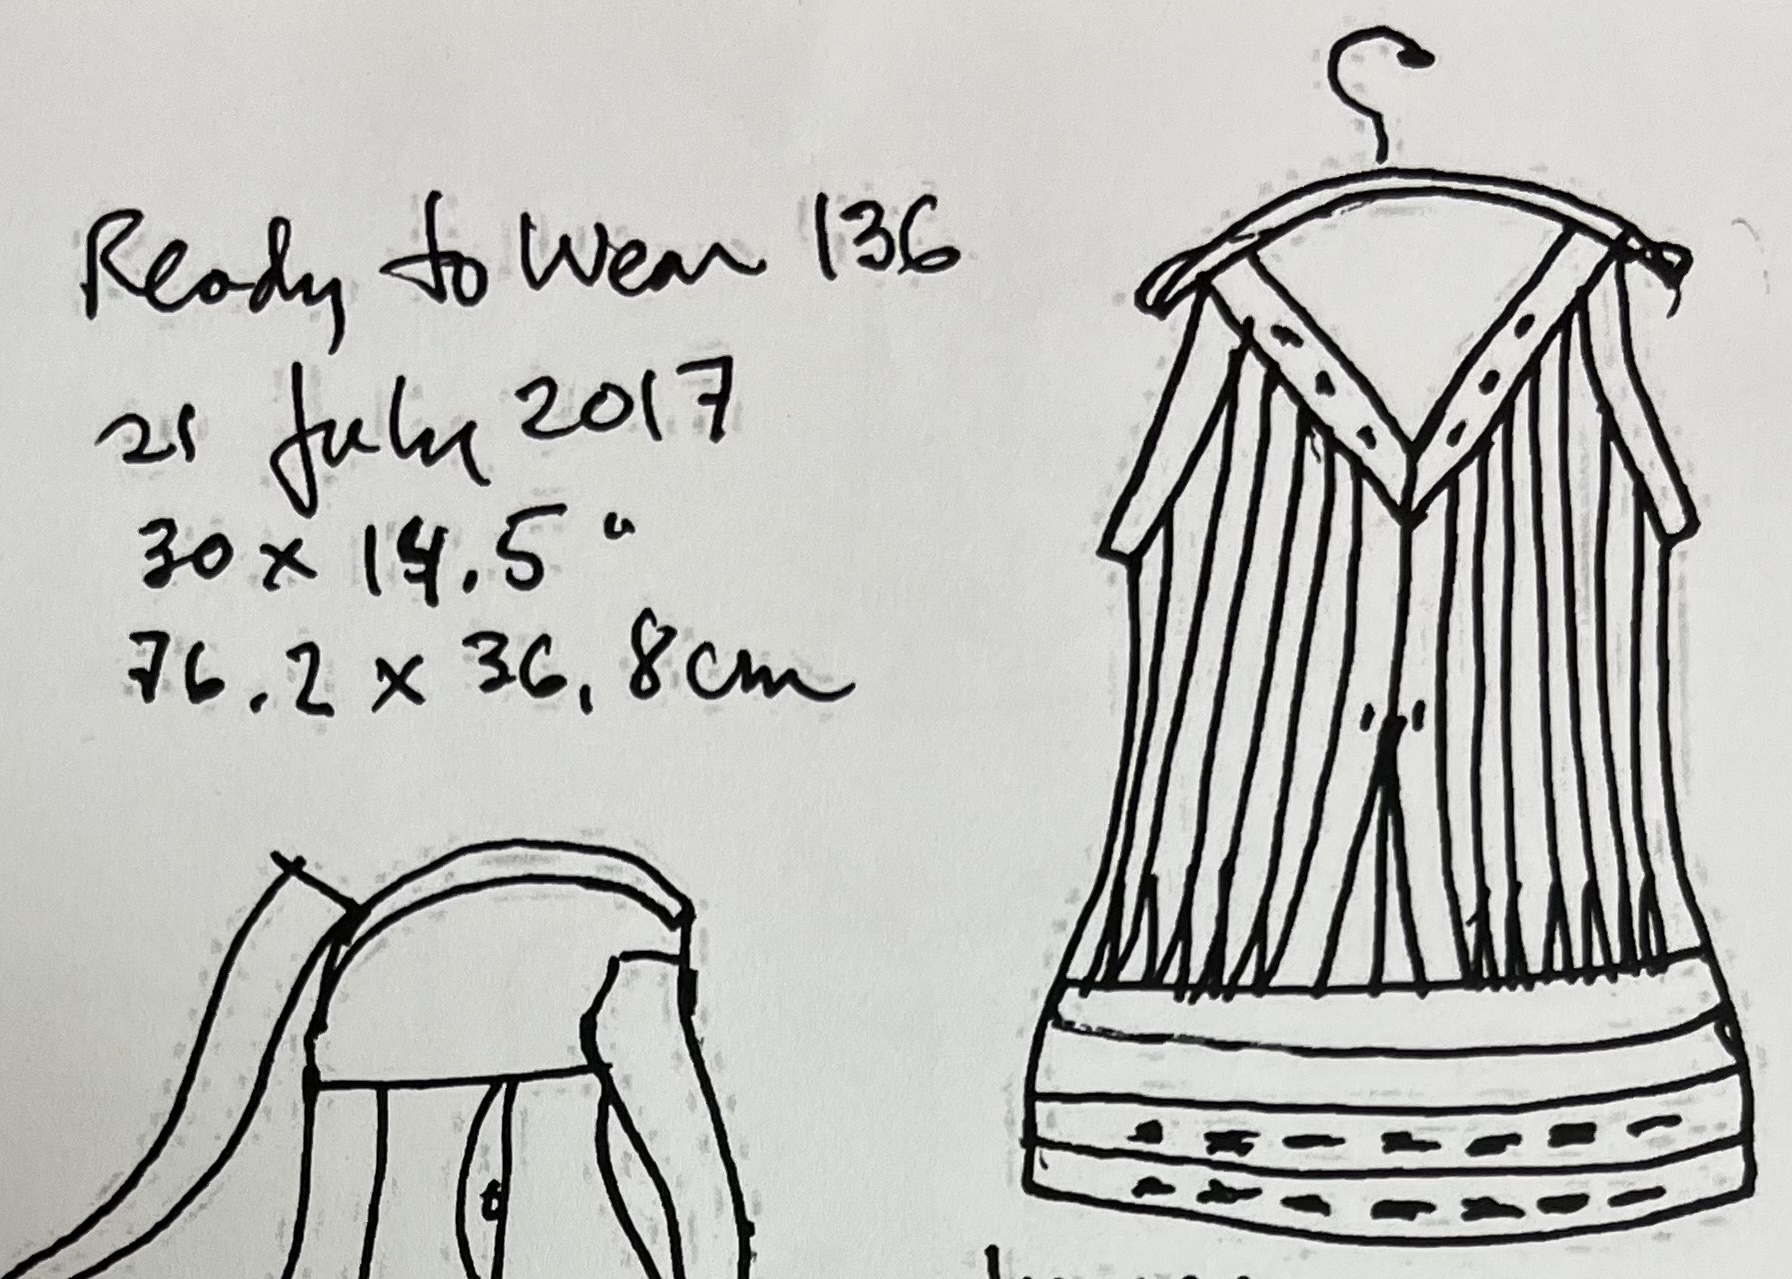 Ready to Wear 136
21 July 2017
30 x 14.5"
76.2 x 36.8cm